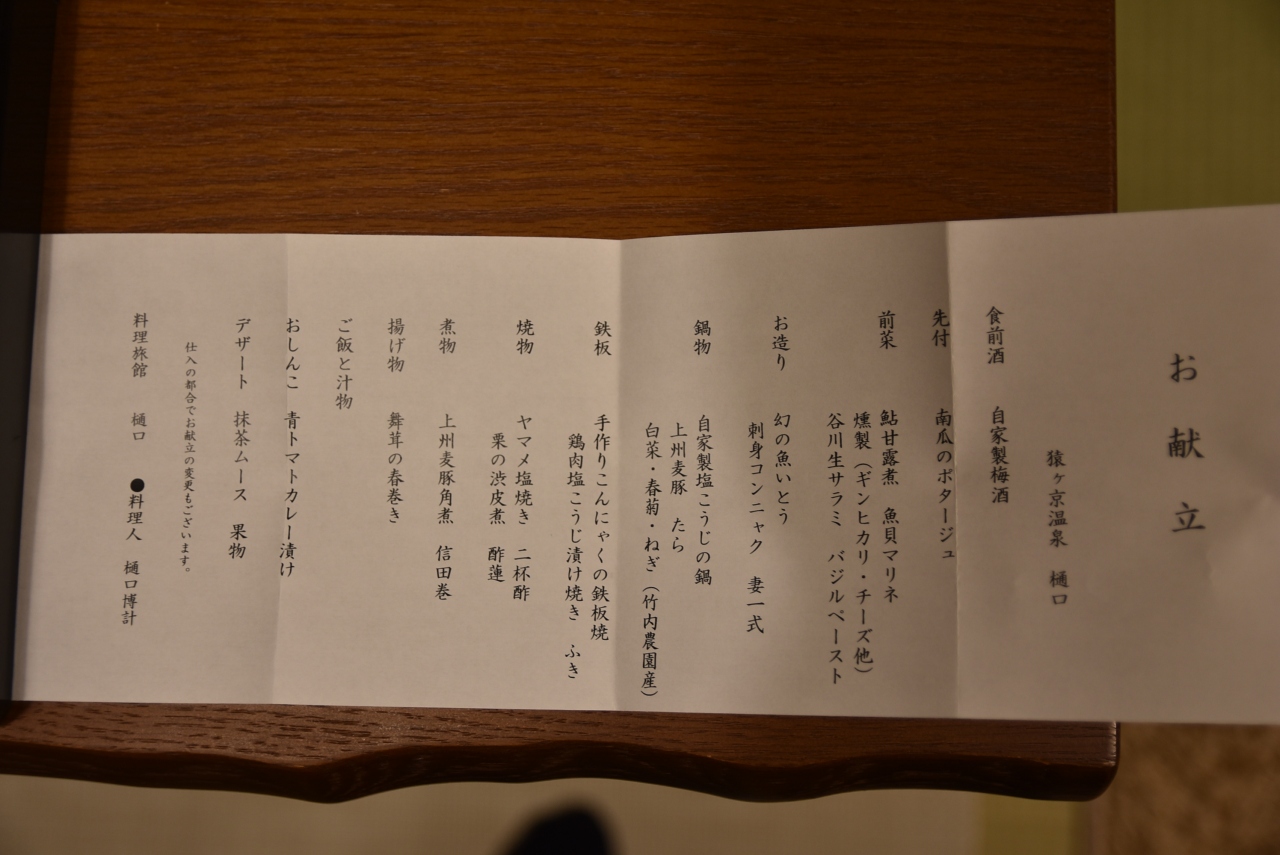 お献立
猿ヶ京温泉 樋口
食前酒 自家製梅酒
先付 南瓜のポタージュ
前菜 鮎甘露煮 魚貝マリネ
燻製（ギンヒカリ・チーズ他）
谷川生サラミ バジルペースト
お造り 幻の魚いとう
刺身コンニャク 妻一式
鍋物 自家製塩こうじの鍋
上州麦豚 たら
白菜・春菊・ねぎ（竹内農園産）
鉄板 手作りこんにゃくの鉄板焼
鶏肉塩こうじ漬け焼き ふき
焼物 ヤマメ塩焼き 二杯酢
栗の渋皮煮 酢蓮
煮物 上州麦豚角煮 信田巻
揚げ物 舞茸の春巻き
ご飯と汁物
おしんこ 青トマトカレー漬け
デザート 抹茶ムース 果物
仕入の都合でお献立の変更もございます。
料理旅館 樋口 ●料理人 樋口博計